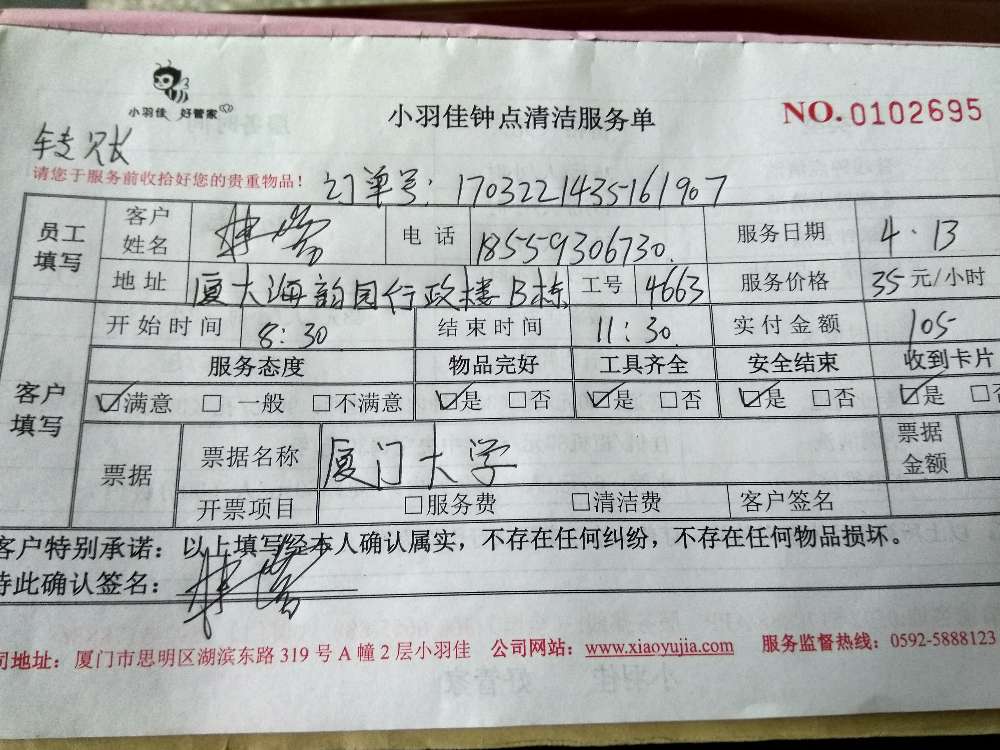 小羽佳 好管家
小羽佳钟点清洁服务单
NO. 0102695
转账
请您于服务前收拾好您的贵重物品！
订单号：1703221435161907
员工填写 客户姓名 电话 18559306730 服务日期 4.13
地址 厦大海韵园行政楼B栋 工号 4663 服务价格 35 元/小时
客户填写 开始时间 8:30 结束时间 11:30 实付金额 105
服务态度 物品完好 工具齐全 安全结束 收到卡片
☑满意 □一般 □不满意 ☑是 □否 ☑是 □否 ☑是 □否 ☑是 □否
票据 票据名称 厦门大学 票据金额
开票项目 □服务费 □清洁费 客户签名
客户特别承诺：以上填写经本人确认属实，不存在任何纠纷，不存在任何物品损坏。
特此确认签名：
司地址：厦门市思明区湖滨东路 319 号 A 幢 2 层小羽佳 公司网站：www.xiaoyujia.com 服务监督热线：0592-5888123